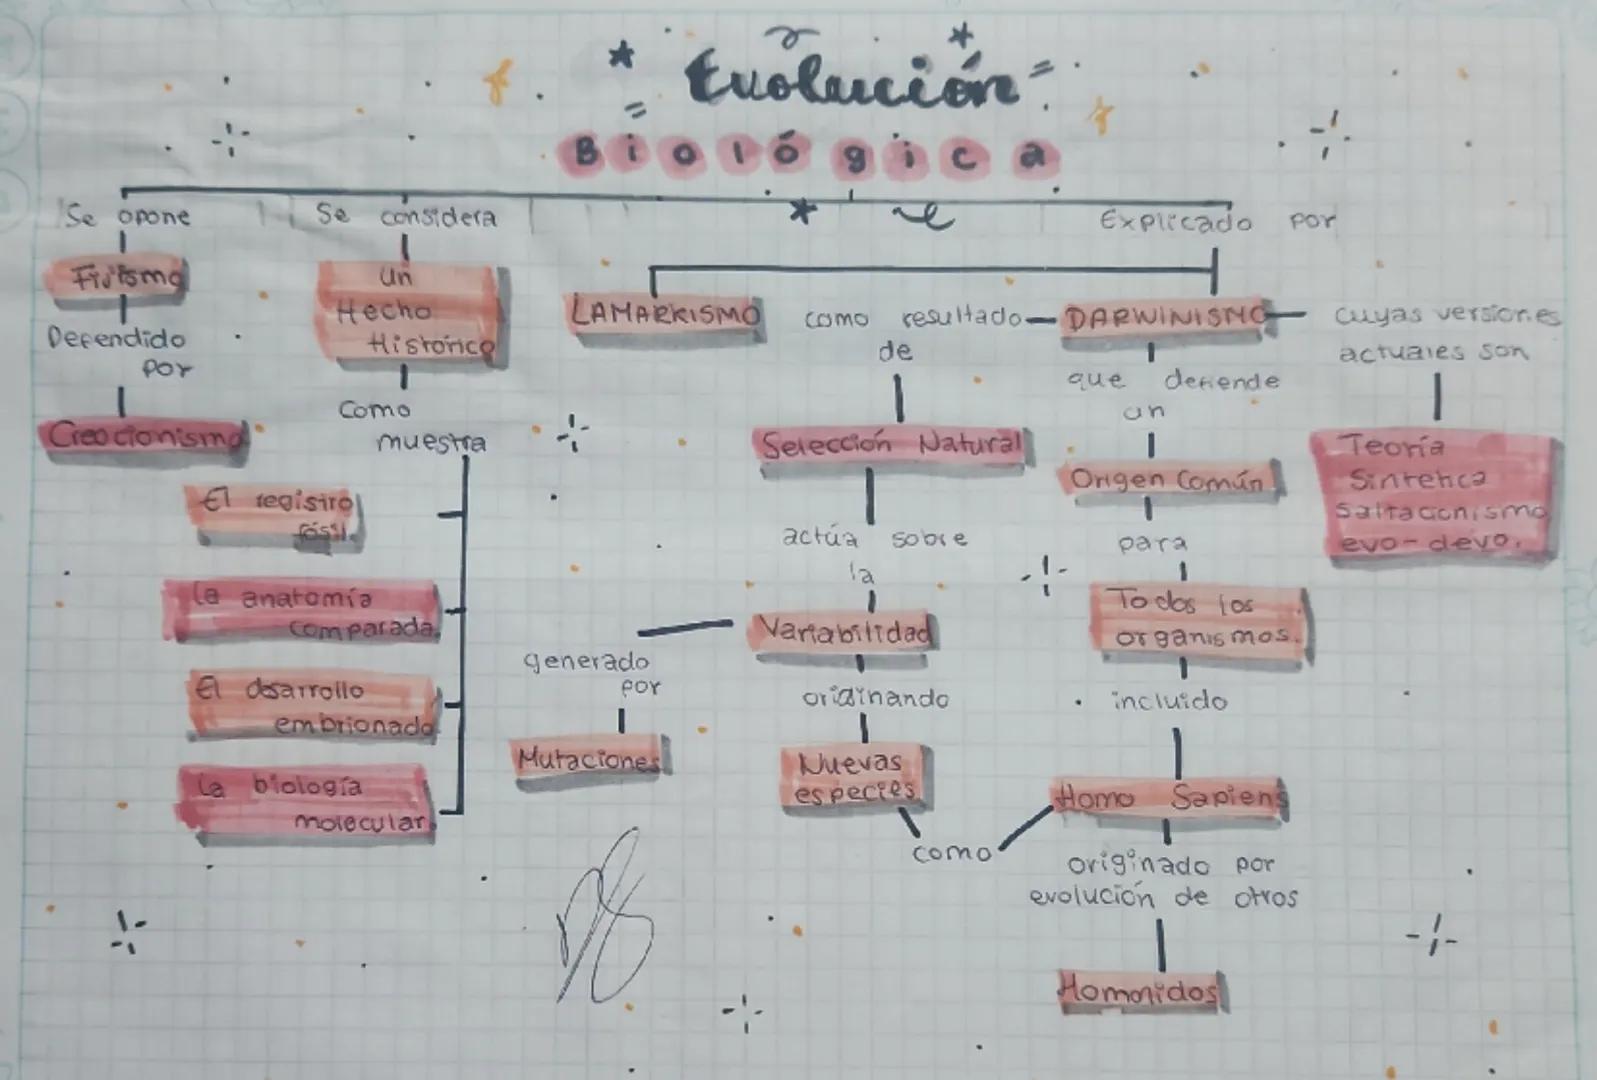 Evolución
Biológica
Se opone
Fijismo
Defendido
por
Creacionismo
Se considera
Un
Hecho
Histórico
Como
muestra
El registro
fósil.
La anatomía
comparada.
El desarrollo
embrionado
La biología
molecular.
Explicado por
LAMARKISMO
como resultado
de
DARWINISMO
cuyas versiones
actuales son
Teoría
Sintetica
Saltacionismo
evo-devo.
Selección Natural
actúa sobre
la
Variabilidad
generado
por
Mutaciones
originando
Nuevas
especies
como
que defiende
un
Origen Común
para
Todos los
organismos.
incluido
Homo Sapiens
originado por
evolución de otros
Homonidos